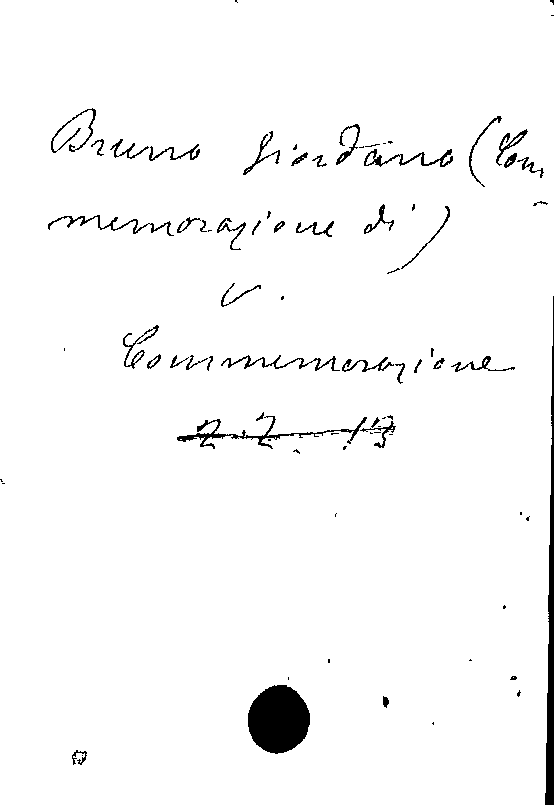 Bruno Giordano (Com-
memorazione di)
v.
Commemorazione
22. 13